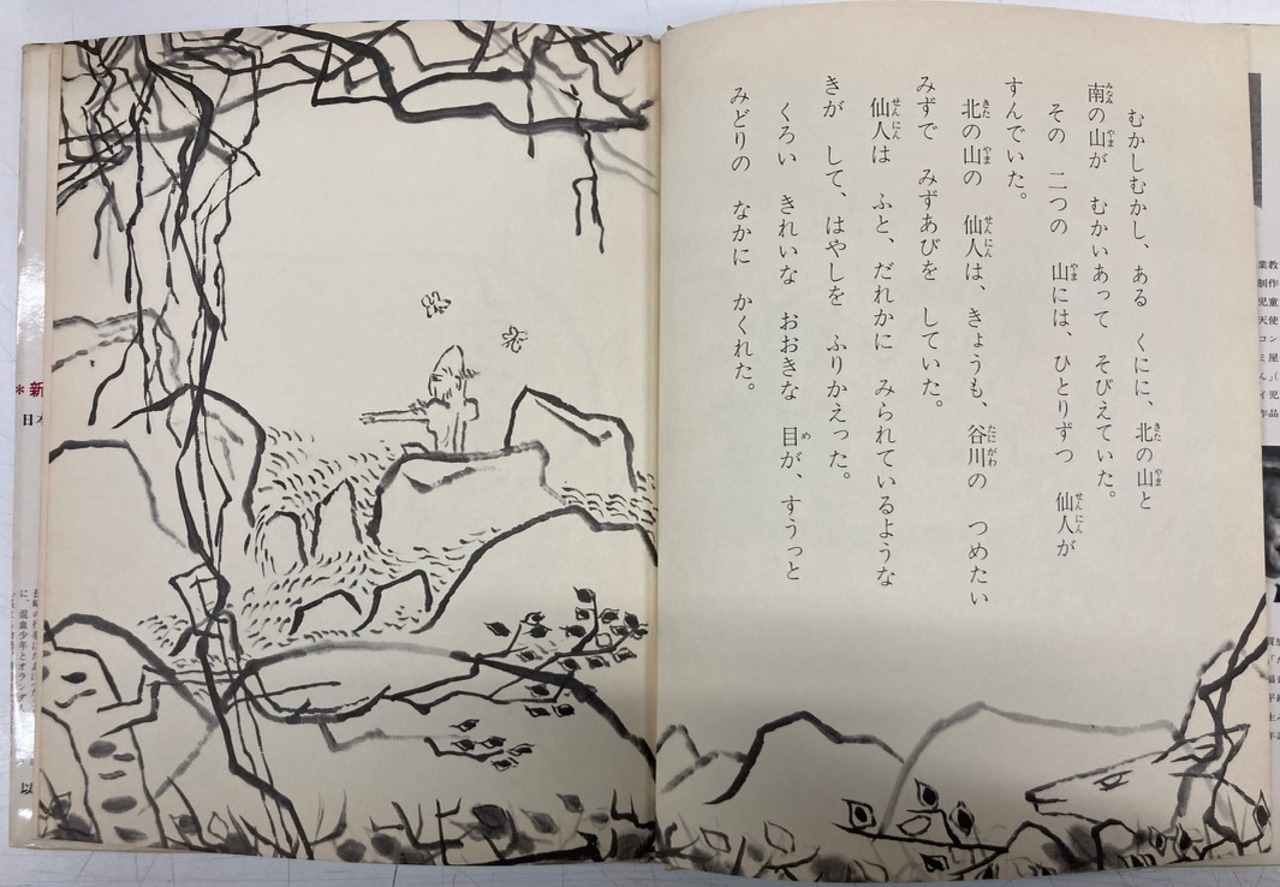 むかしむかし、ある　くにに、北の山と
南の山が　むかいあって　そびえていた。
その　二つの　山には、ひとりずつ　仙人が
すんでいた。
北の山の　仙人は、きょうも、谷川の　つめたい
みずで　みずあびを　していた。
仙人は　ふと、だれかに　みられているような
きが　して、はやしを　ふりかえった。
くろい　きれいな　おおきな　目が、すうっと
みどりの　なかに　かくれた。
*新
日本
に、混血少年とオランダ
以
業教
制作
児童
天使
コン
ミ屋
ん」(
イ児
作品